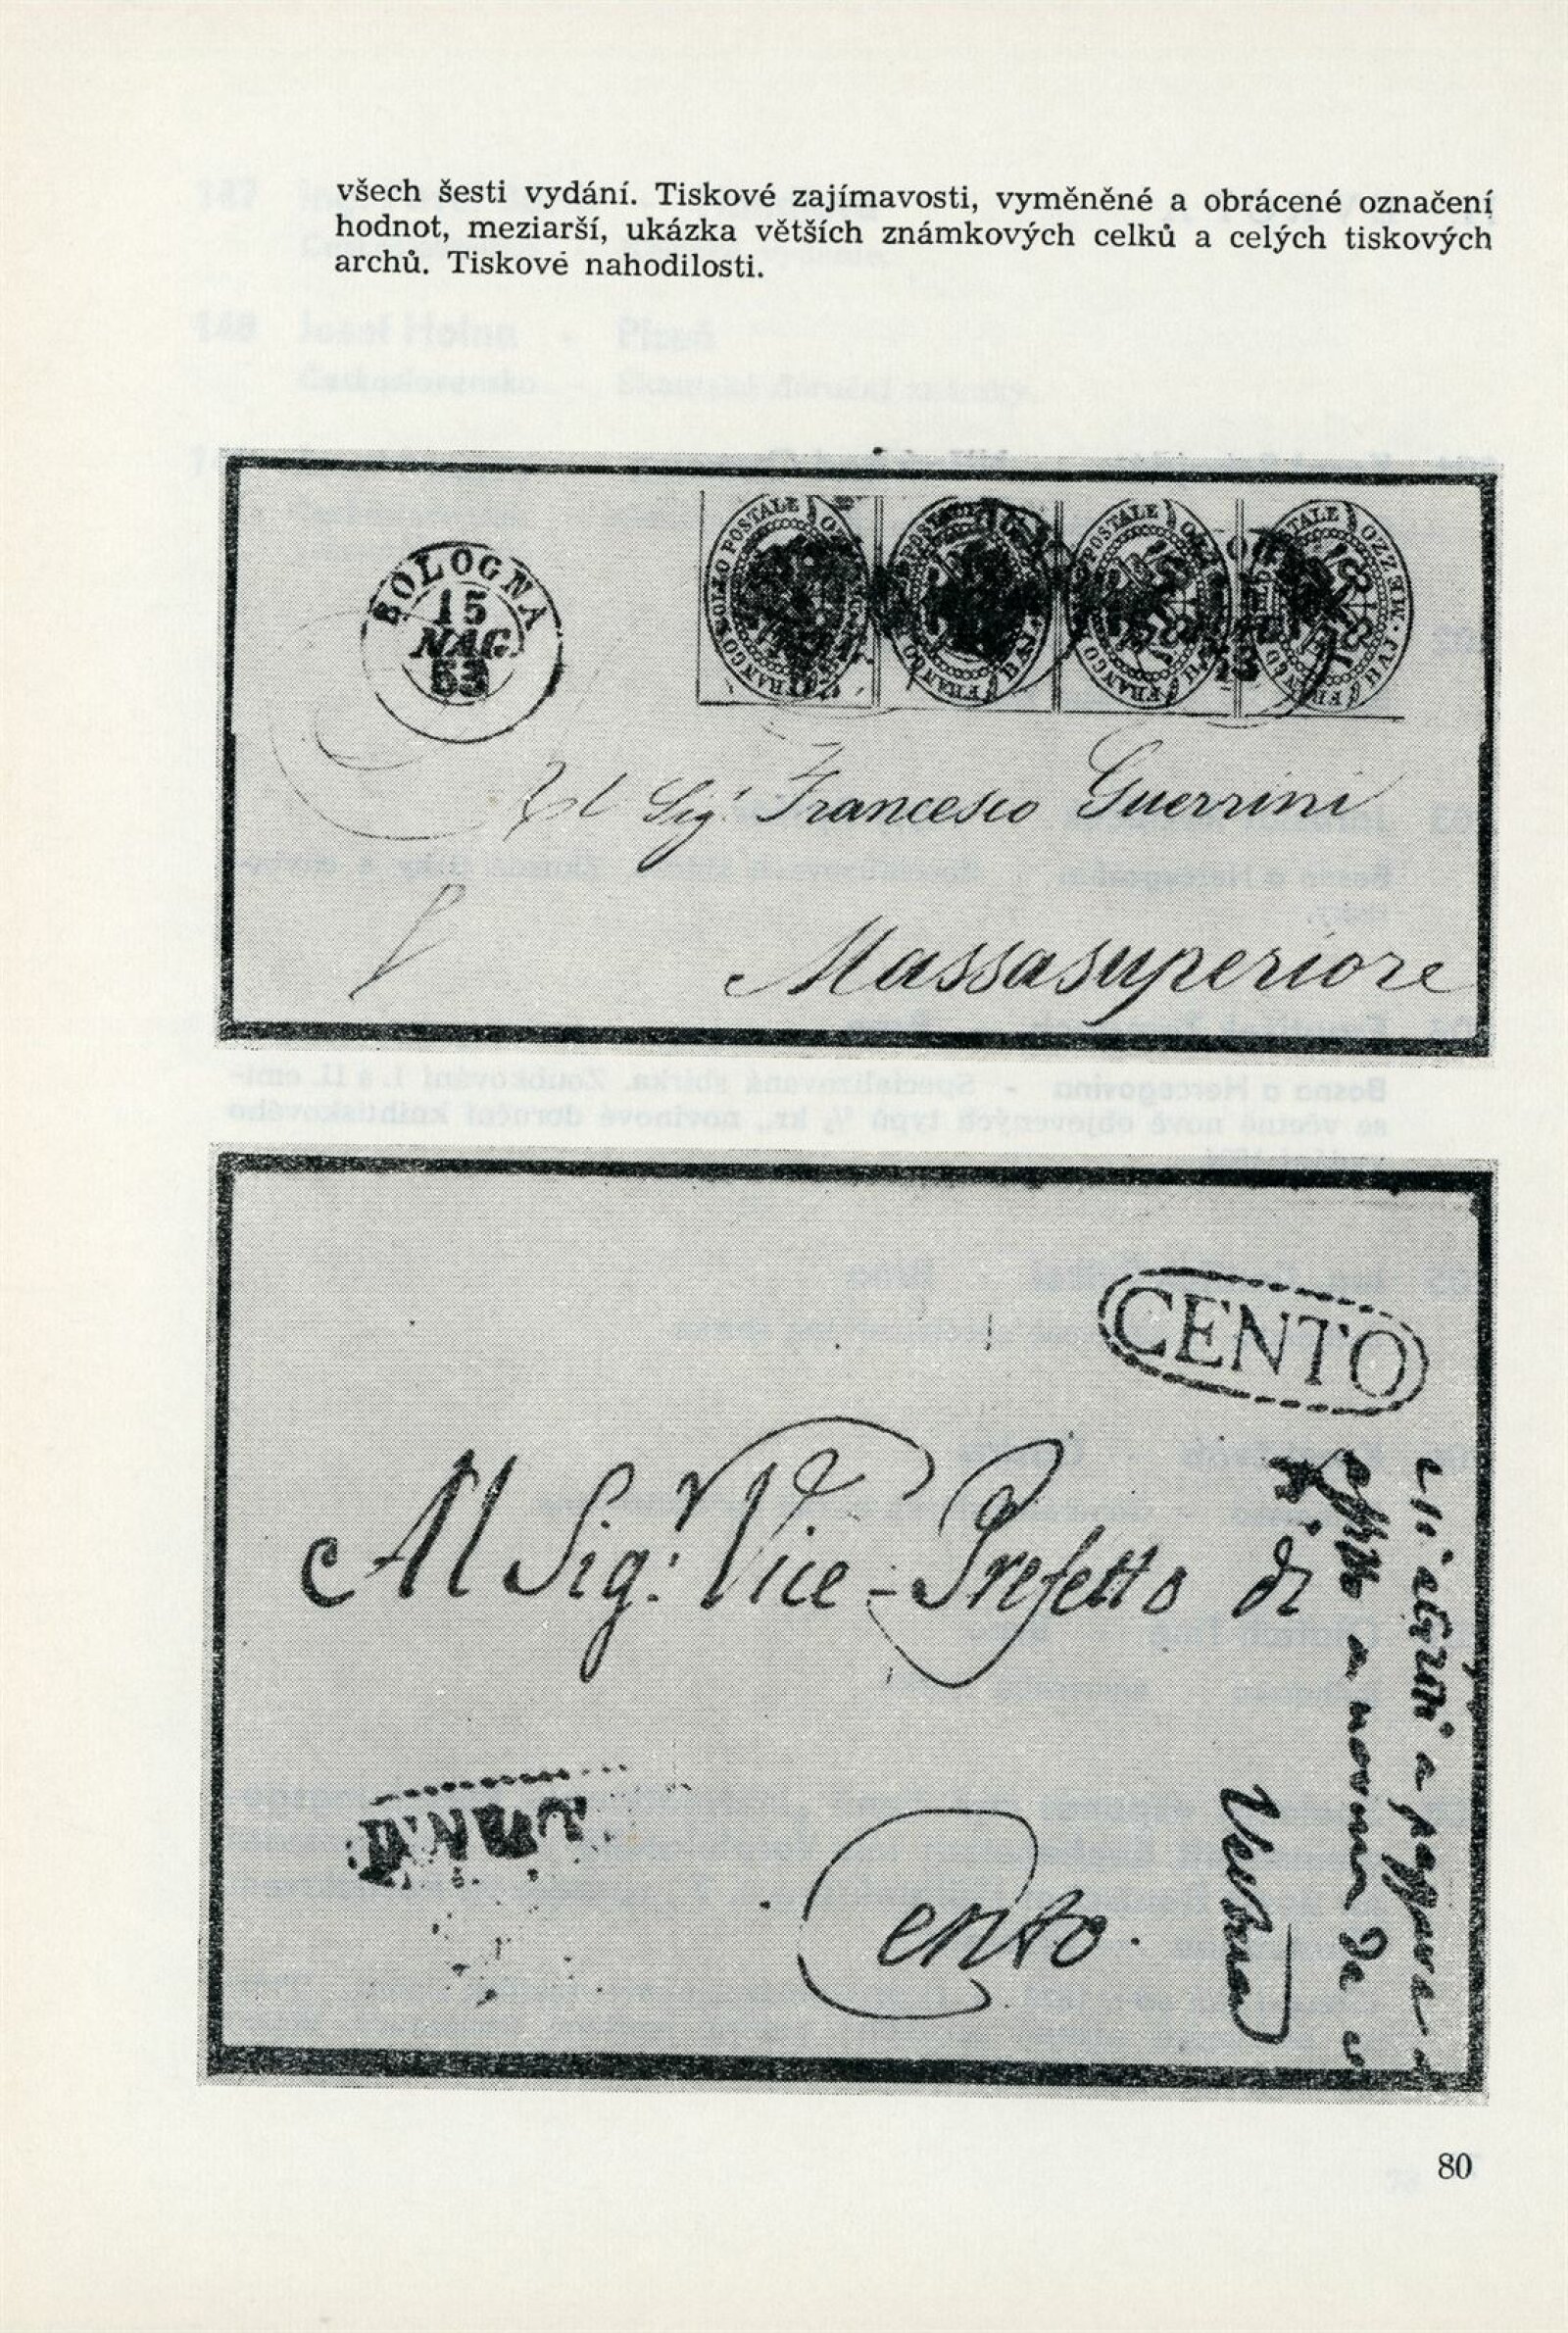 všech šesti vydání. Tiskové zajímavosti, vyměněné a obrácené označení
hodnot, meziarší, ukázka větších známkových celků a celých tiskových
archů. Tiskové nahodilosti.
BOLOGNA
15
MAG
53
FRANCO BOLLO POSTALE
FRANCO POSTALE
FRANCO POSTALE
MEZZO
Al Sigr. Francesco Guerrini
Massasuperiore
CENTO
Al Sig: Vice-Prefetto di
Cento.
80